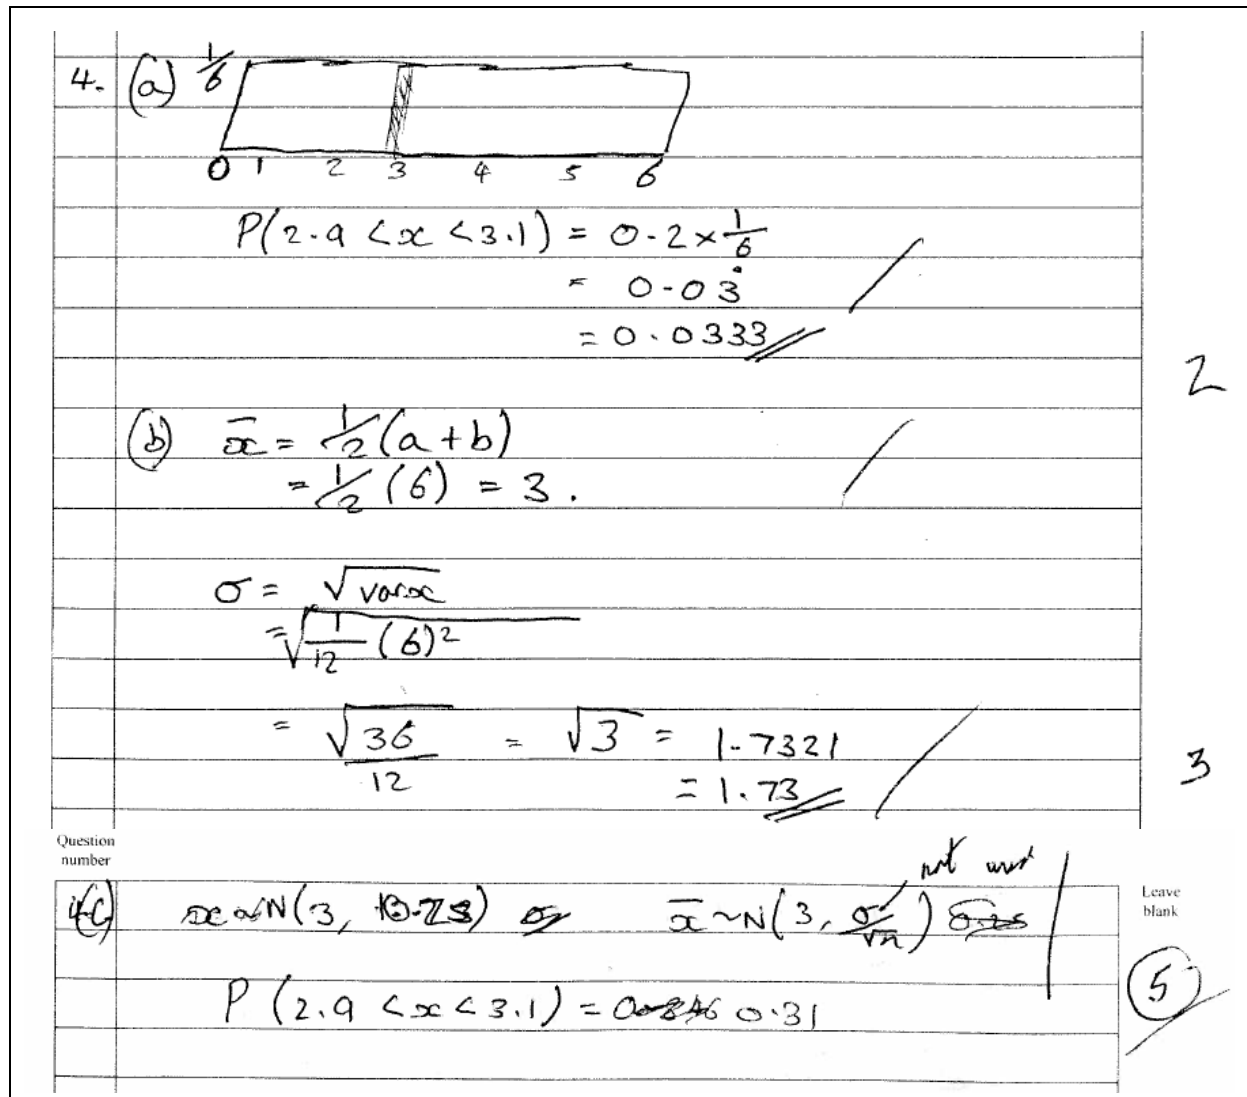 4. (a) 1/6
0 1 2 3 4 5 6
P(2.9 < x < 3.1) = 0.2 × 1/6
= 0.03̇
= 0.0333
2
(b) x̄ = 1/2 (a + b)
= 1/2 (6) = 3.
σ = √var x
= √1/12 (6)²
= √36/12 = √3 = 1.7321
= 1.73
3
Question
number
not
4(c) x ~ N(3, ) x̄ ~ N(3, σ/√n)
Leave
blank
P (2.9 < x < 3.1) = 0.31
5